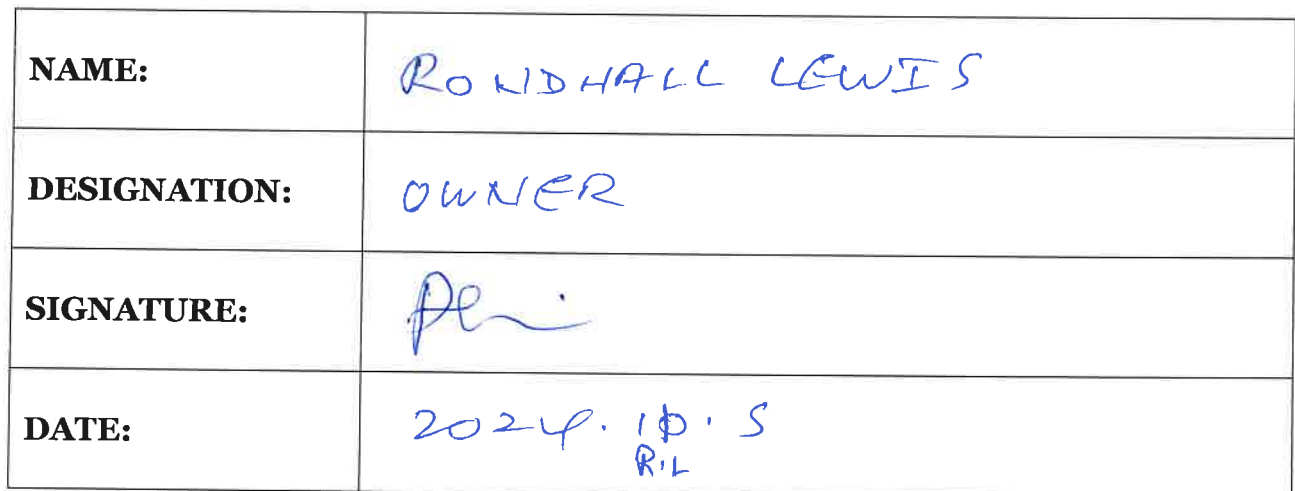 NAME: RONDHALL LEWIS
DESIGNATION: OWNER
SIGNATURE:
DATE: 2024. 10. 5
R.L